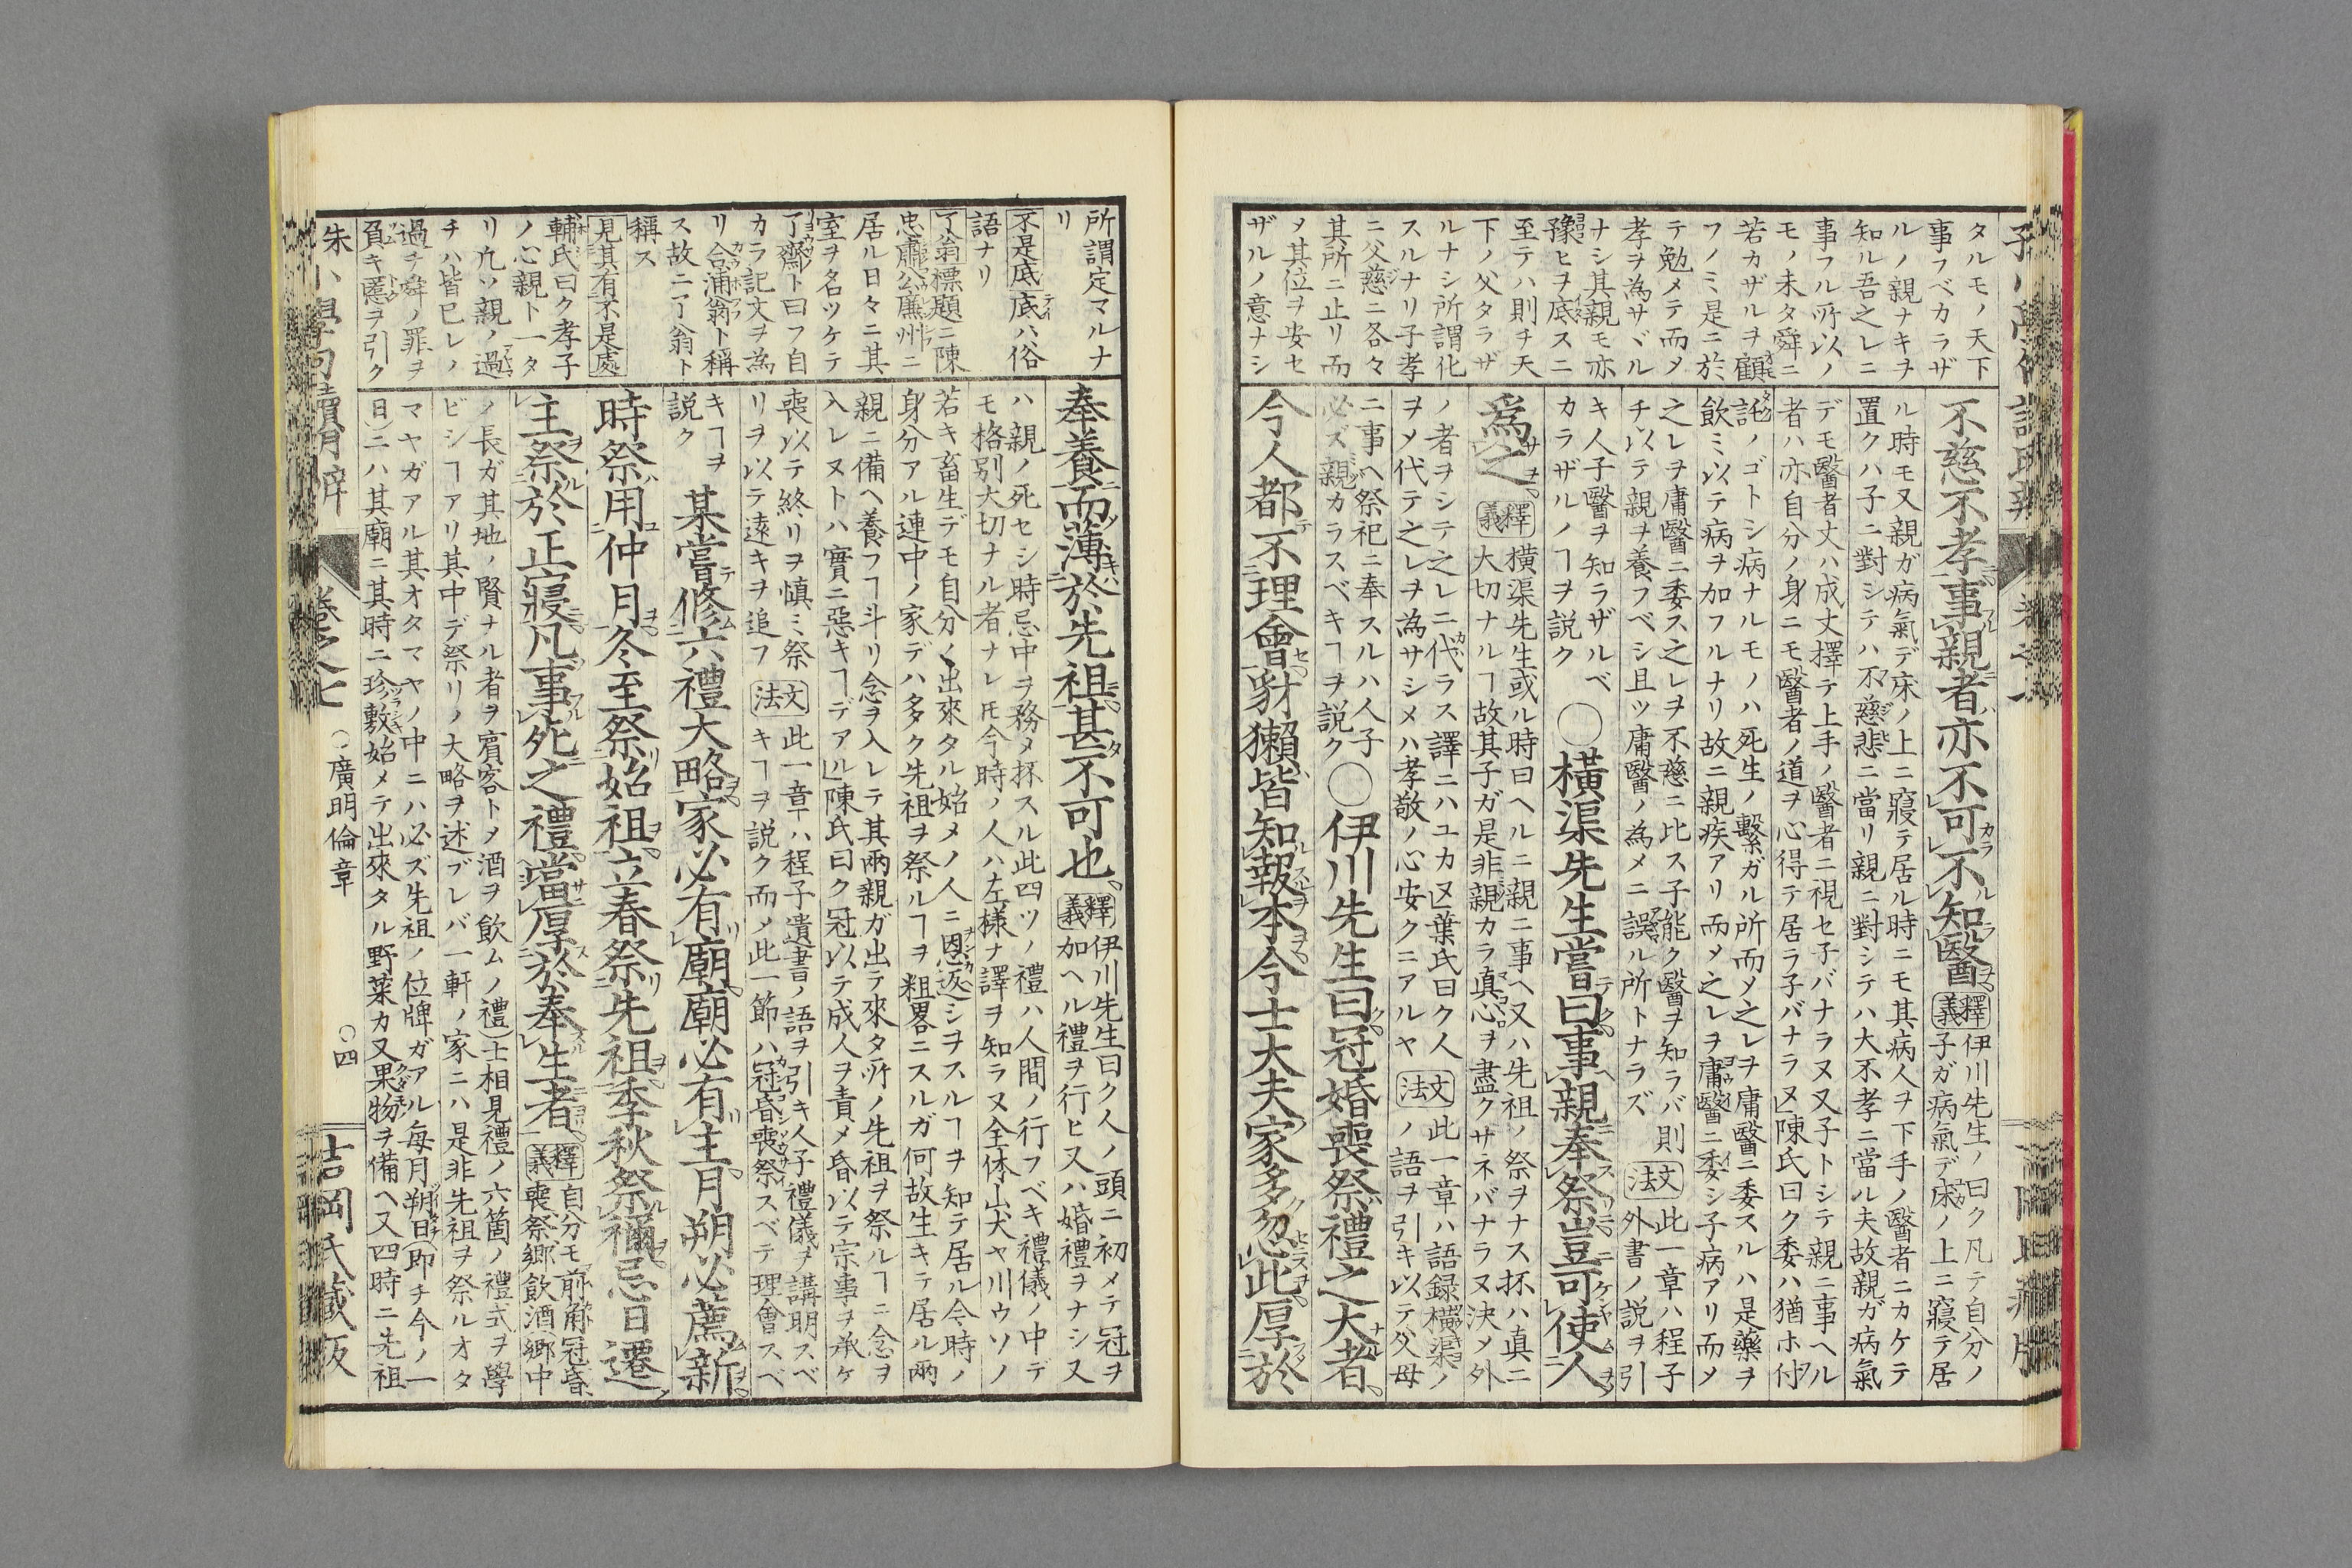 タルモノ天下
事フベカラザ
ルノ親ナキヲ
知ル吾之レニ
事フル所以ノ
モノ未タ舜ニ
若カザルヲ顧
フノミ是ニ於
テ勉メテ而メ
孝ヲ為サバル
ナシ其親モ亦
豫ヒヲ底スニ
至テハ則ヲ天
下ノ父タラザ
ルナシ所謂化
スルナリ子孝
ニ父慈ニ各々
其所ニ止リ而
メ其位ヲ安セ
ザルノ意ナシ
不慈不孝事親者亦不可不知醫
釋義
伊川先生ノ曰ク凡テ自分ノ
子ガ病氣デ床ノ上ニ寢テ居
ル時モ又親ガ病氣デ床ノ上ニ寢テ居ル時ニモ其病人ヲ下手ノ醫者ニカケテ
置クハ子ニ對シテハ不慈悲ニ當リ親ニ對シテハ大不孝ニ當ル夫故親ガ病氣
デモ醫者丈ハ成丈擇テ上手ノ醫者ニ視セ子バナラヌ又子トシテ親ニ事ヘル
者ハ亦自分ノ身ニモ醫者ノ道ヲ心得テ居ラ子バナラヌ」陳氏曰ク委ハ猶ホ付
託ノゴトシ病ナルモノハ死生ノ繫ガル所而メ之レヲ庸醫ニ委スルハ是藥ヲ
飲ミ以テ病ヲ加フルナリ故ニ親疾アリ而メ之レヲ庸醫ニ委シ子病アリ而メ
之レヲ庸醫ニ委ス之レヲ不慈ニ比ス子能ク醫ヲ知ラバ則
チ以テ親ヲ養フベシ且ツ庸醫ノ為メニ誤ル所トナラズ
文法
此一章ハ程子
外書ノ説ヲ引
キ人子醫ヲ知ラザルベ
カラザルノヿヲ説ク
〇橫渠先生嘗曰事親奉祭豈可使人
爲之
釋義
橫渠先生或ル時曰ヘルニ親ニ事ヘ又ハ先祖ノ祭ヲナス抔ハ真ニ
大切ナルヿ故其子ガ是非親カラ真心ヲ盡クサネバナラヌ決メ外
ノ者ヲシテ之レニ代ラス譯ニハユカヌ」葉氏曰ク人
ヲメ代テ之レヲ為サシメハ孝敬ノ心安クニアルヤ
文法
此一章ハ語録橫渠ノ
ノ語ヲ引キ以テ父母
ニ事ヘ祭祀ニ奉スルハ人子
必ズ親カラスベキヿヲ説ク
〇伊川先生曰冠婚喪祭禮之大者
今人都不理會豺獺皆知報本今士大夫家多忽此厚於
所謂定マルナ
リ
不是底 底ハ俗
語ナリ
了翁標題ニ陳
忠肅公廉州ニ
居ル日々ニ其
室ヲ名ツケテ
了齋ト曰フ自
カラ記文ヲ為
リ合浦翁ト稱
ス故ニ了翁ト
稱ス
見其有不是處
輔氏曰ク孝子
ノ心親ト一タ
リ凡ソ親ノ過
チハ皆已レノ
過チ舜ノ罪ヲ
負キ慝ヲ引ク
奉養而薄於先祖甚不可也
釋義
伊川先生曰ク人ノ頭ニ初メテ冠ヲ
加ヘル禮ヲ行ヒ又ハ婚禮ヲナシ又
ハ親ノ死セシ時忌中ヲ務メ抔スル此四ツノ禮ハ人間ノ行フベキ禮儀ノ中デ
モ格別大切ナル者ナレ𪜈今時ノ人ハ左様ナ譯ヲ知ラヌ全体山犬ヤ川ウソノ
若キ畜生デモ自分〱出來タル始メノ人ニ恩返シヲスルヿヲ知テ居ル今時ノ
身分アル連中ノ家デハ多ク先祖ヲ祭ルヿヲ粗畧ニスルガ何故生キテ居ル兩
親ニ備ヘ養フヿ斗リ念ヲ入レテ其兩親ガ出テ來タ所ノ先祖ヲ祭ルヿニ念ヲ
入レヌトハ實ニ惡キヿデアル」陳氏曰ク冠以テ成人ヲ責メ昏以テ宗事ヲ承ケ
喪以テ終リヲ慎ミ祭
リヲ以テ遠キヲ追フ
文法
此一章ハ程子遺書ノ語ヲ引キ人子禮儀ヲ講明スベ
キヿヲ説ク而メ此一節ハ冠昏喪祭スベテ理會スベ
キヿヲ
説ク
某嘗修六禮大略家必有廟廟必有主月朔必薦新
時祭用仲月冬至祭始祖立春祭先祖季秋祭禰忌日遷
主祭於正寢凡事死之禮當厚於奉生者
釋義
自分モ前廉冠昏
喪祭鄉飲酒(鄉中
ノ長ガ其地ノ賢ナル者ヲ賓客トメ酒ヲ飲ムノ禮)士相見禮ノ六箇ノ禮式ヲ學
ビシヿアリ其中デ祭リノ大略ヲ述ブレバ一軒ノ家ニハ是非先祖ヲ祭ルオタ
マヤガアル其オタマヤノ中ニハ必ズ先祖ノ位牌ガアル每月朔日(即チ今ノ一
日)ニハ其廟ニ其時ニ珍敷始メテ出來タル野菜カ又果物ヲ備ヘ又四時ニ先祖
卷之七
〇廣明倫章
〇四
吉岡氏藏版